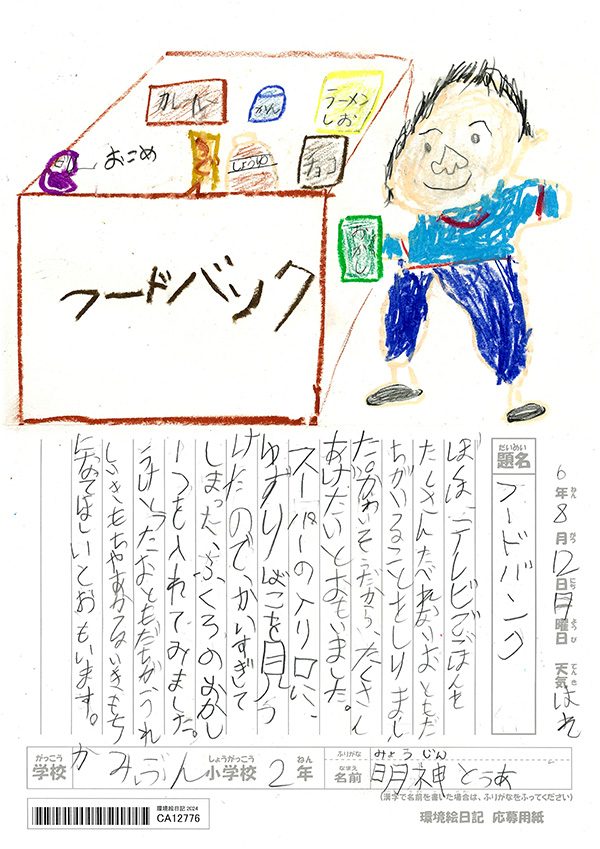 カレー
かん
ラーメン
しお
おこめ
しょうゆ
チョコ
おかし
フードバンク
6年8月12日月曜日 天気はれ
ねん がつ にち ようび てんき
だいめい
題名
フードバンク
ぼくは、テレビでごはんを
たくさんたべれないおともだ
ちがいることをしりまし
た。かわいそうだから、たくさん
あげたいとおもいました。
スーパーの入り口に、
ゆずりばこを見つ
けたので、かいすぎて
しまった、ふくろのおかし
1つを入れてみました。
うけとったおともだちが、うれ
しいきもちやあたたかいきもち
になってほしいとおもいます。
がっこう
学校
みぶん
しょうがっこう
小学校
2
ねん
年
ふりがな
みょうじん
なまえ
名前
明神とうあ
(漢字で名前を書いた場合は、ふりがなをふってください)
環境絵日記 2024
CA12776
環境絵日記 応募用紙